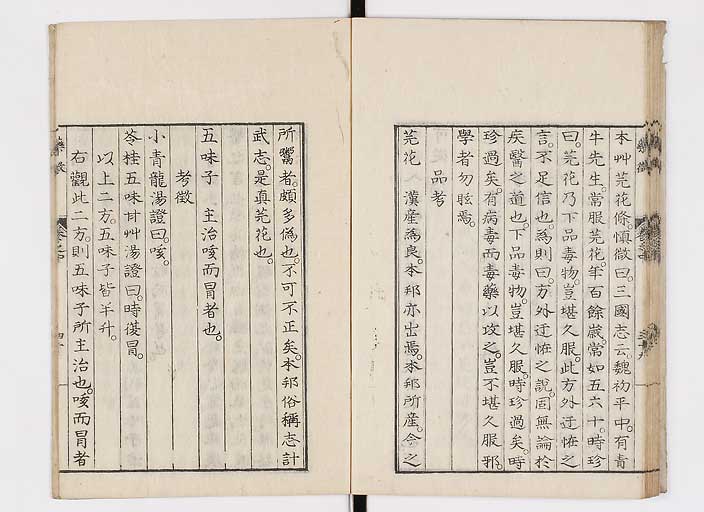 本艸芫花條愼微曰。三國志云。魏初平中。有青
牛先生。常服芫花。年百餘歲。常如五六十。時珍
曰。芫花乃下品毒物。豈堪久服。此方外迂恠之
言。不足信也。爲則曰。方外迂恠之說。固無論於
疾醫之道也。下品毒物。豈堪久服。時珍過矣。時
珍過矣。有病毒而毒藥以攻之。豈不堪久服邪。
學者勿眩焉。
品考
芫花 漢産爲良。本邦亦出焉。本邦所産。今之
所鬻者。頗多僞也。不可不正矣。本邦俗稱志計
武志。是真芫花也。
五味子 主治咳而冒者也。
考徵
小青龍湯證曰。咳。
苓桂五味甘艸湯證曰。時復冒。
以上二方。五味子皆半升。
右觀此二方。則五味子所主治也。咳而冒者